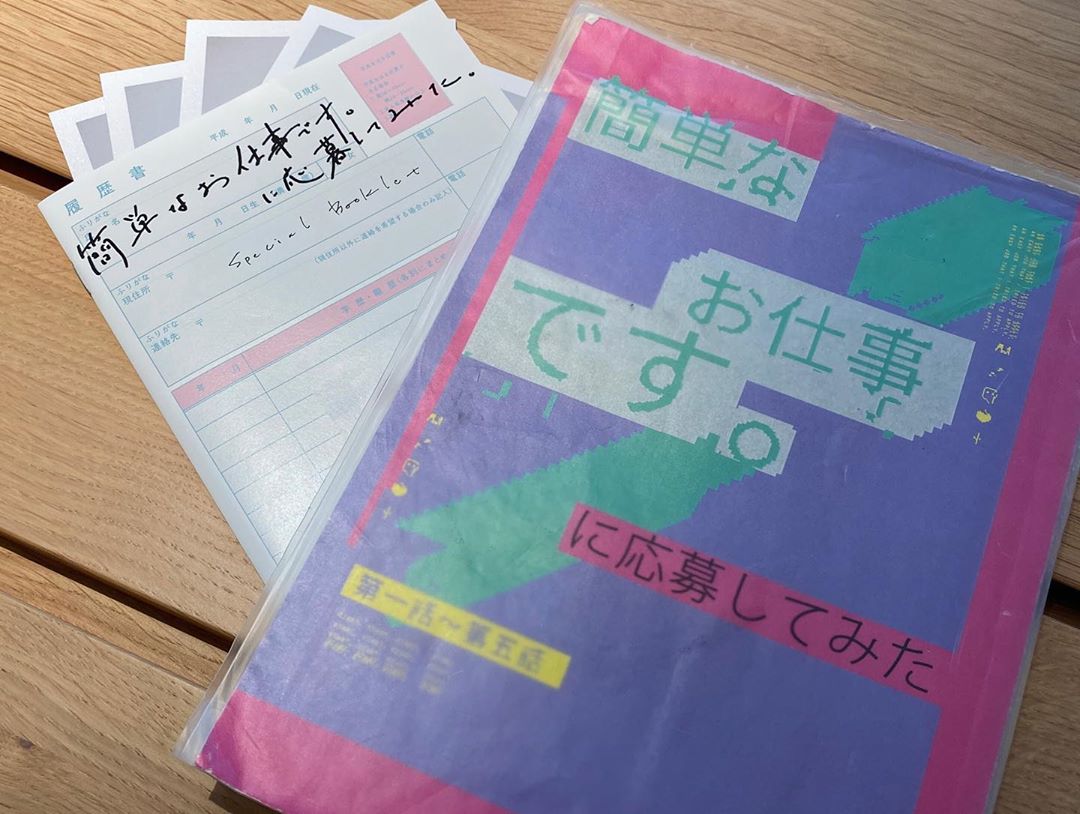 平成 年 月 日現在
履歴書
ふりがな
名
簡単なお仕事です。
に応募してみた。
年 月 日生
Special Booklet
電話
ふりがな
現住所 〒
電話
(現住所以外に連絡を希望する場合のみ記入)
ふりがな
連絡先 〒
年 月
学歴・職歴(各別にまとめ
簡単な
お仕事
です。
に応募してみた
第一話〜第五話